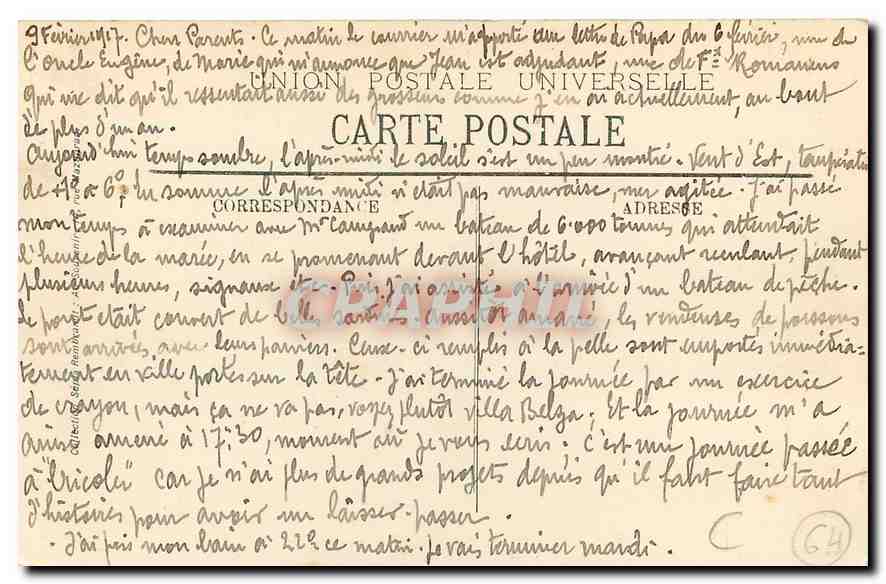 9 Février 1917. Chers Parents. Ce matin le courrier m'a apporté une lettre de Papa du 6 février, une de
l'oncle Eugène, de Marie qui m'annonce que Jean est adjudant, une de Romanens
UNION POSTALE UNIVERSELLE
qui me dit qu'il ressentait aussi des grosseurs comme j'en ai actuellement, au bout
de plus d'un an.
CARTE POSTALE
Aujourd'hui temps sombre, l'après-midi le soleil s'est un peu montré. Vent d'Est, température
de 4° à 6°, en somme l'après midi n'était pas mauvaise, mer agitée. J'ai passé
CORRESPONDANCE ADRESSE
mon temps à examiner avec Mr un bateau de 6.000 tonnes qui attendait
l'heure de la marée, en se promenant devant l'hôtel, avançant reculant, pendant
plusieurs heures, signaux etc. Puis j'ai assisté à l'arrivée d'un bateau de pêche.
le pont était couvert de belles sardines aussitôt amarré, les vendeuses de poissons
sont arrivées avec leurs paniers. Ceux-ci remplis à la pelle sont emportés immédia-
tement en ville portés sur la tête. J'ai terminé la journée par un exercice
de crayon, mais ça ne va pas, voyez plutôt villa Belza. Et la journée m'a
ainsi amené à 17h30, moment où je vous écris. C'est une journée passée
à "bricoler" car je n'ai plus de grands projets depuis qu'il faut faire tant
d'histoires pour avoir un laisser-passer.
- J'ai pris mon bain à 22° ce matin. Je vais terminer mardi.
C 64
CPAPHIL